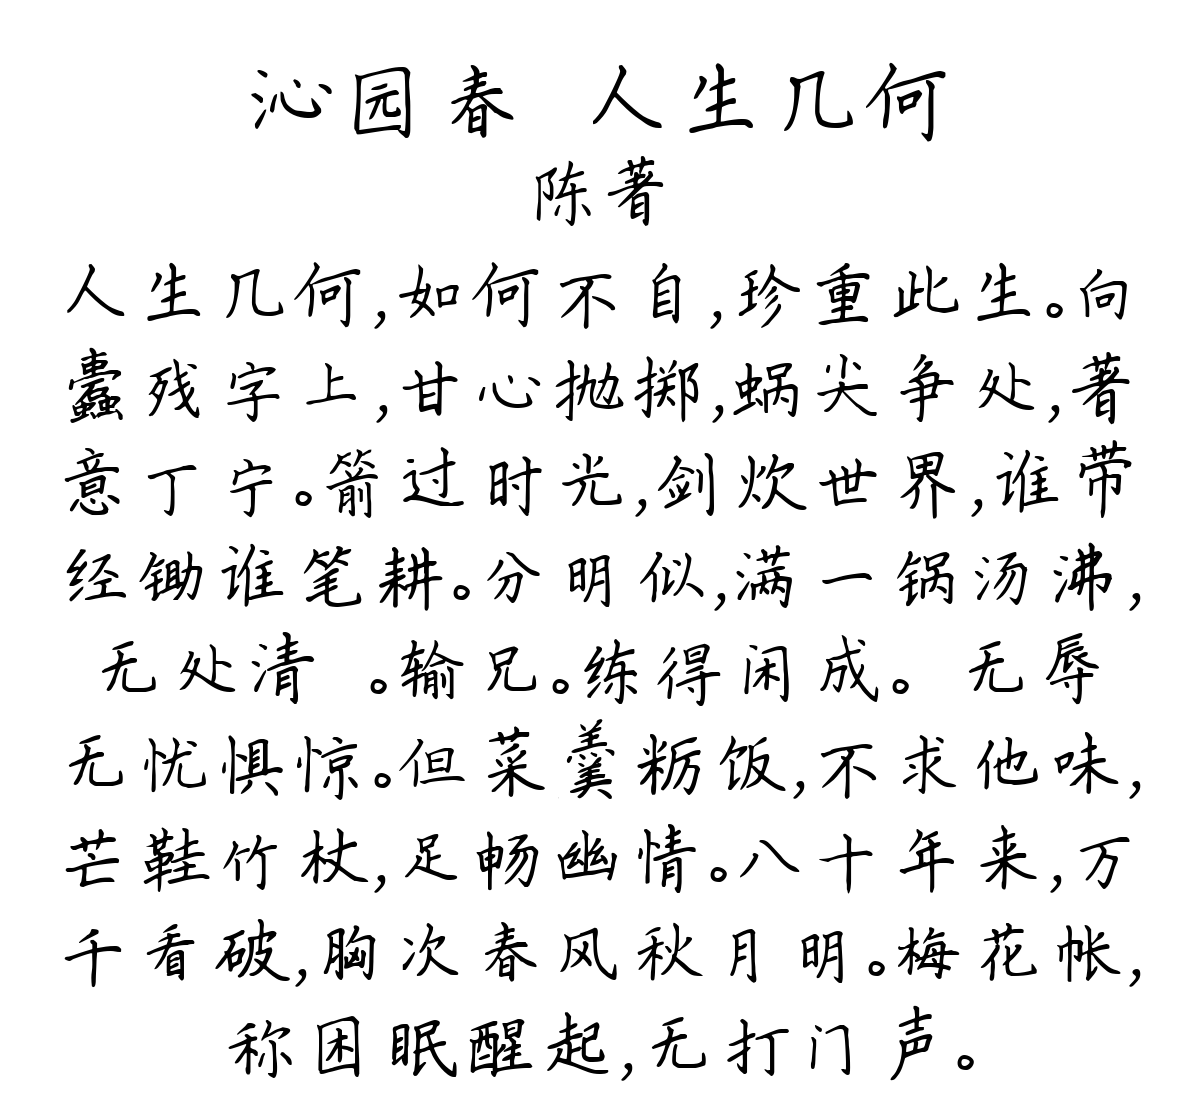 沁园春 人生几何
陈著
人生几何,如何不自,珍重此生。向
蠹残字上,甘心抛掷,蜗尖争处,著
意丁宁。箭过时光,剑炊世界,谁带
经锄谁笔耕。分明似,满一锅汤沸,
无处清 。输兄。练得闲成。 无辱
无忧惧惊。但菜羹粝饭,不求他味,
芒鞋竹杖,足畅幽情。八十年来,万
千看破,胸次春风秋月明。梅花帐,
称困眠醒起,无打门声。